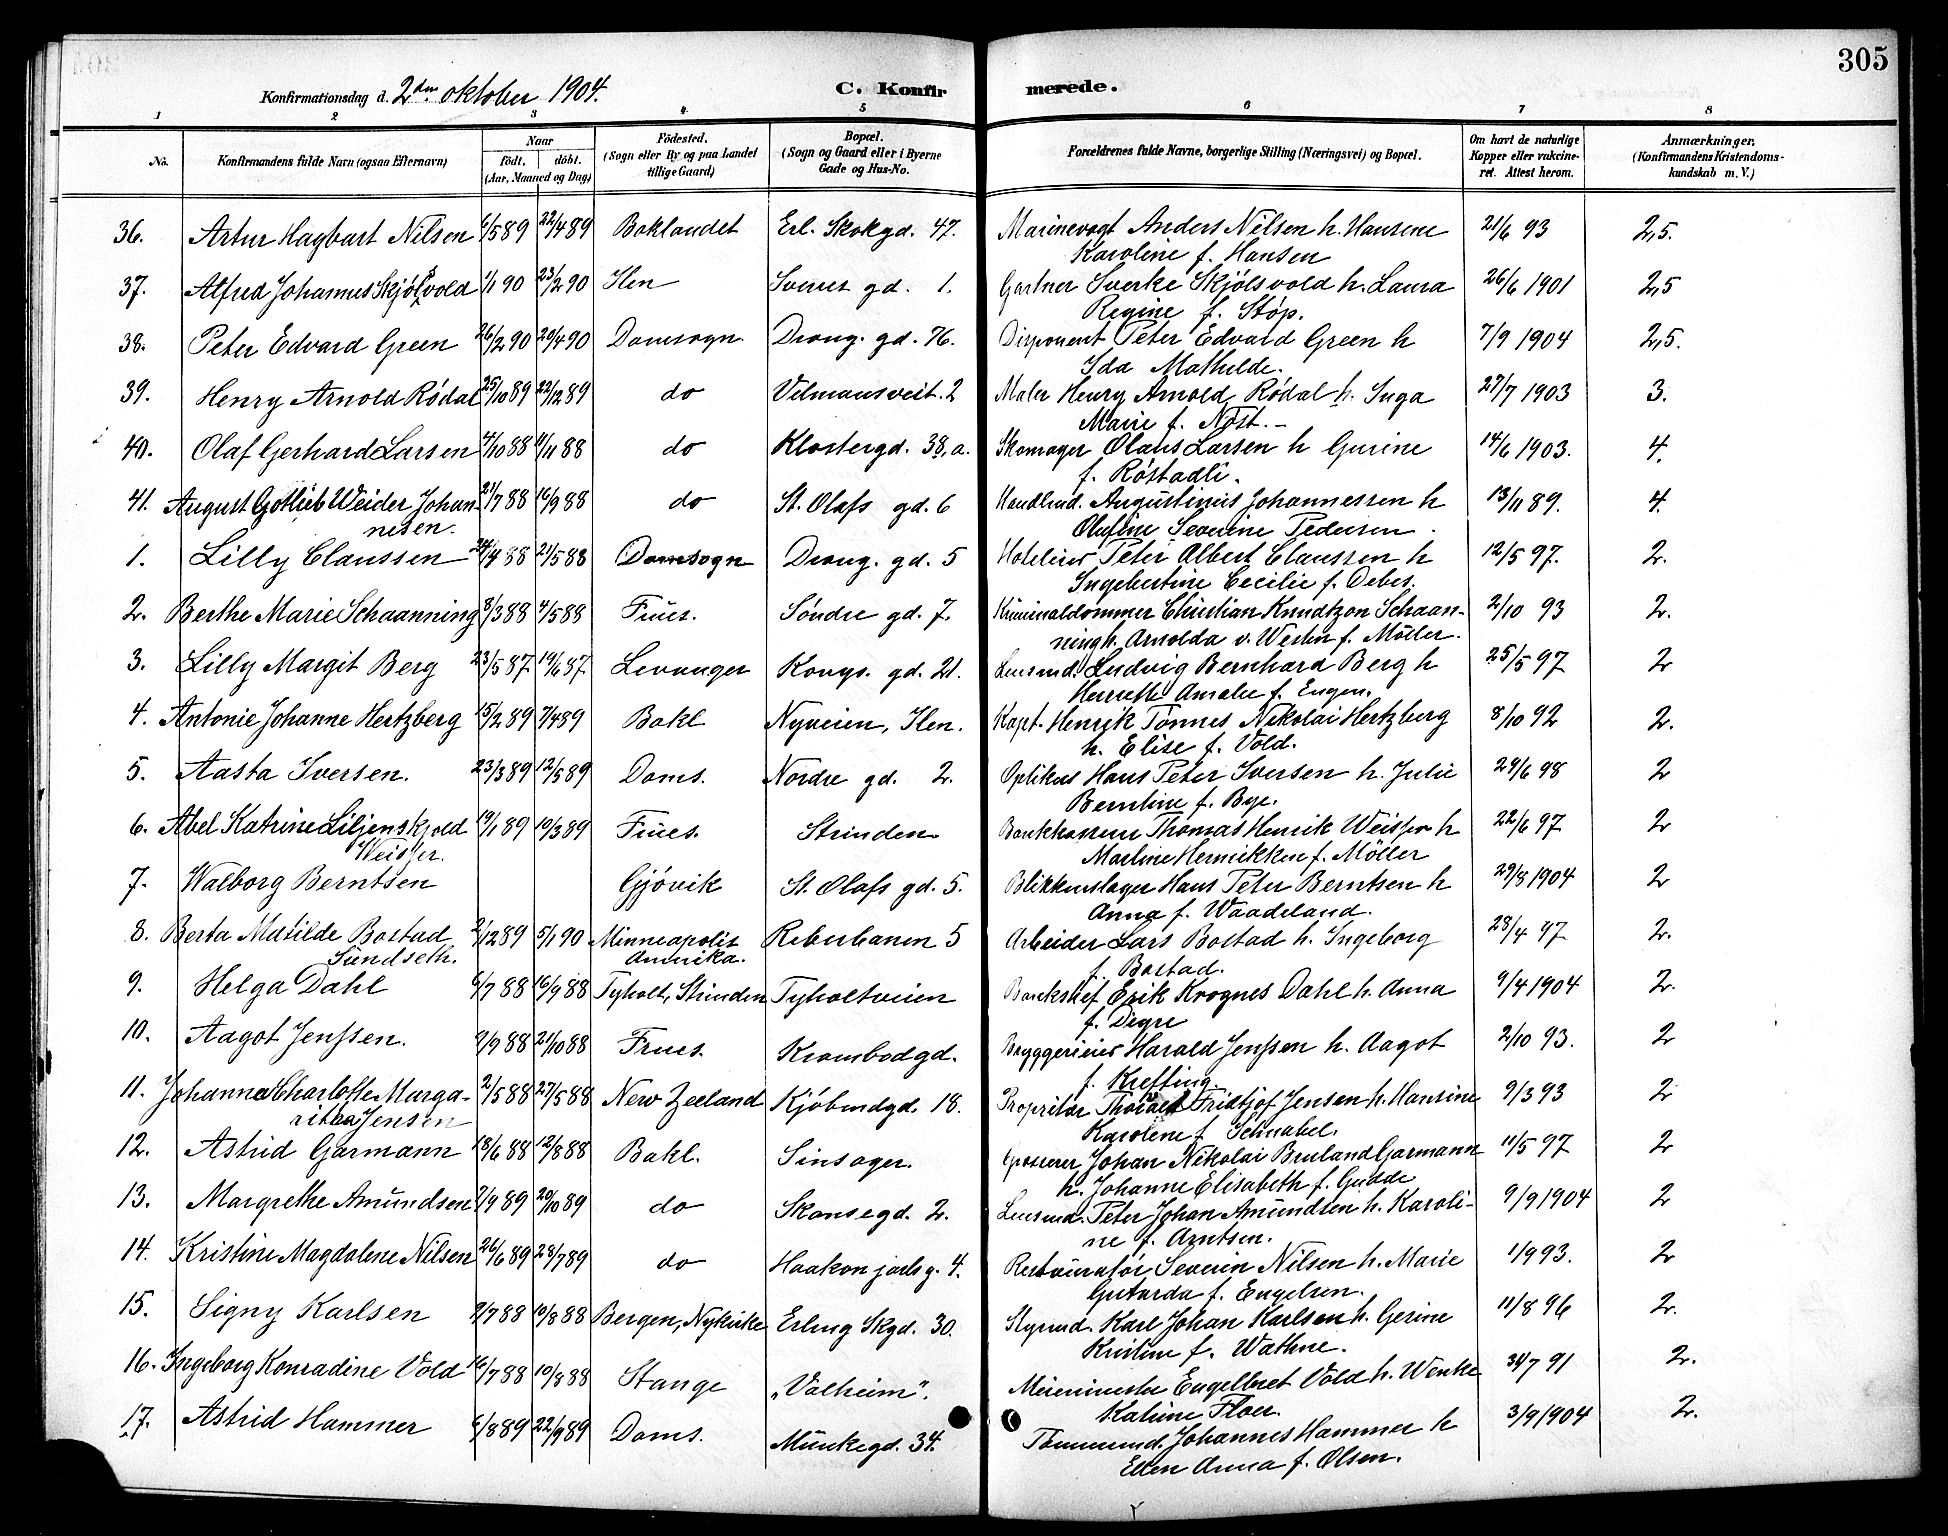 305
Konfirmationsdag d. 2den oktober 1904.
C. Konfirmerede.
1 2 3 4 5 6 7 8
No. Konfirmandens fulde Navn (ogsaa Efternavn) Naar født, døbt. (Aar, Maaned og Dag) Fødested. (Sogn eller By og paa Landet tillige Gaard) Bopæl. (Sogn og Gaard eller i Byerne Gade og Hus-No. Forældrenes fulde Navne, borgerlige Stilling (Næringsvei) og Bopæl. Om havt de naturlige Kopper eller vakcineret. Attest herom. Anmærkninger, (Konfirmandens Kristendomskundskab m. V.)
36. Artur Hagbart Nilsen 6/5 89 22/4 89 Baklandet Erl. Skakgd. 47. Marinevagt Anders Nilsen h. Hansine 21/6 93 2,5.
Karoline f. Hansen
37. Alfred Johannes Skjølsvold 1/1 90 23/2 90 Ilen Sverres gd. 1. Gartner Sverke Skjølsvold h. Laura 26/6 1901 2,5
Regine f. Støp.
38. Peter Edvard Green 26/2 90 20/4 90 Domsogn Drong. gd. 76. Disponent Peter Edvard Green h 7/9 1904 2,5.
Ida Mathilde.
39. Henry Arnold Rødal 25/10 89 22/12 89 do Velmansveit. 2 Maler Henry Arnold Rødal h. Inga 27/7 1903 3.
Marie f. Nøst.
40. Olaf Gerhard Larsen 4/10 88 11/11 88 do Klostergd. 38,a. Skomager Olaus Larsen h Gurine 14/6 1903. 4.
f. Røstadli.
41. August Gotlieb Weider Johan- 21/7 88 16/9 88 do St. Olafs gd. 6 Handlmd. Augustinus Johannessen h 13/11 89. 4.
nesen. Olufine Severine Pedersen.
1. Lilly Claussen 24/4 88 21/5 88 Domsogn Drong. gd. 5 Hoteleier Peter Albert Claussen h 12/5 97. 2.
Ingebertine Cecilie f. Debes.
2. Berthe Marie Schaanning 8/3 88 4/5 88 Frues. Søndre gd. 7. Kriminaldommer Christian Knudtzon Schaan- 2/10 93 2.
ning h. Arnolda v. Westen f. Möller.
3. Lilly Margit Berg 23/5 87 19/6 87 Levanger Kongs. gd. 21. Lensmd. Ludvig Bernhard Berg h 25/5 97 2
Henriette Amalie f. Eugen.
4. Antonie Johanne Hertzberg 15/2 89 7/4 89 Bakl Nyveien, Ilen. Kapt. Henrik Tønnes Nikolai Hertzberg 8/10 92 2.
h. Elise f. Vold.
5. Aasta Iversen. 23/3 89 12/5 89 Doms. Nordre gd. 2. Optikus Hans Peter Iversen h. Julie 29/6 98 2
Berntine f. Bye.
6. Abel Katrine Liljenskjold 19/1 89 10/3 89 Frues. Strinden Bankkasserer Thomas Henrik Weisser h 22/6 97 2
Weisser. Martine Hennikken f. Möller
7. Walborg Berntsen Gjøvik St. Olafs gd. 5. Blikkenslager Hans Peter Berntsen h 29/8 1904 2
Anna f. Waadeland.
8. Berta Matilde Bostad 2/12 89 5/1 90 Minneapolis Reberbanen 5 Arbeider Lars Bostad h. Ingeborg 28/4 97 2.
Sundseth. Amerika. f. Bostad.
9. Helga Dahl 6/7 88 16/9 88 Tyholt, Strinden Tyholtveien Bankchef Erik Krognes Dahl h. Anna 9/4 1904 2.
f. Digre
10. Aagot Jenssen. 9/9 88 21/10 88 Frues. Krambodgd. Bryggerieier Harald Jenssen h. Aagot 2/10 93. 2
f. Krefting.
11. Johanna Charlotte Marga- 2/5 88 27/5 88 New Zeeland Kjøbmdgd. 18. Propritær Thorald Fridtjof Jensen h. Hansine 9/3 93 2
ritha Jensen Karolene f. Schnabel.
12. Astrid Garmann 18/6 88 12/8 88 Bakl. Sinsager. Grosserer Johan Nikolai Bruland Garmann 11/5 97 2
h. Johanne Elisabeth f. Gudde
13. Margrethe Amundsen 7/9 89 20/10 89 do Skansegd. 2. Lensmd. Peter Johan Amundsen h. Karoli- 9/9 1904 2
ne f. Arntsen.
14. Kristine Magdalene Nilsen 26/6 89 28/7 89 do Haakon jarls g. 4. Restauratør Severin Nilsen h. Marie 1/9 93. 2
Gutarda f. Engelsen.
15. Signy Karlsen 9/7 88 19/8 88 Bergen, Nykirke Erling Skgd. 30. Styrmd. Karl Johan Karlsen h. Gerine 11/8 96 2.
Kristine f. Wathne.
16. Ingeborg Konradine Vold 16/7 88 19/8 88 Stange "Valheim". Meierimester Engelbret Vold h. Wenke 31/7 91 2.
Katrine Floer.
17. Astrid Hammer 6/8 89 22/9 89 Doms. Munkegd. 34. Tømmermd. Johannes Hammer h 3/9 1904 2.
Ellen Anna f. Olsen.